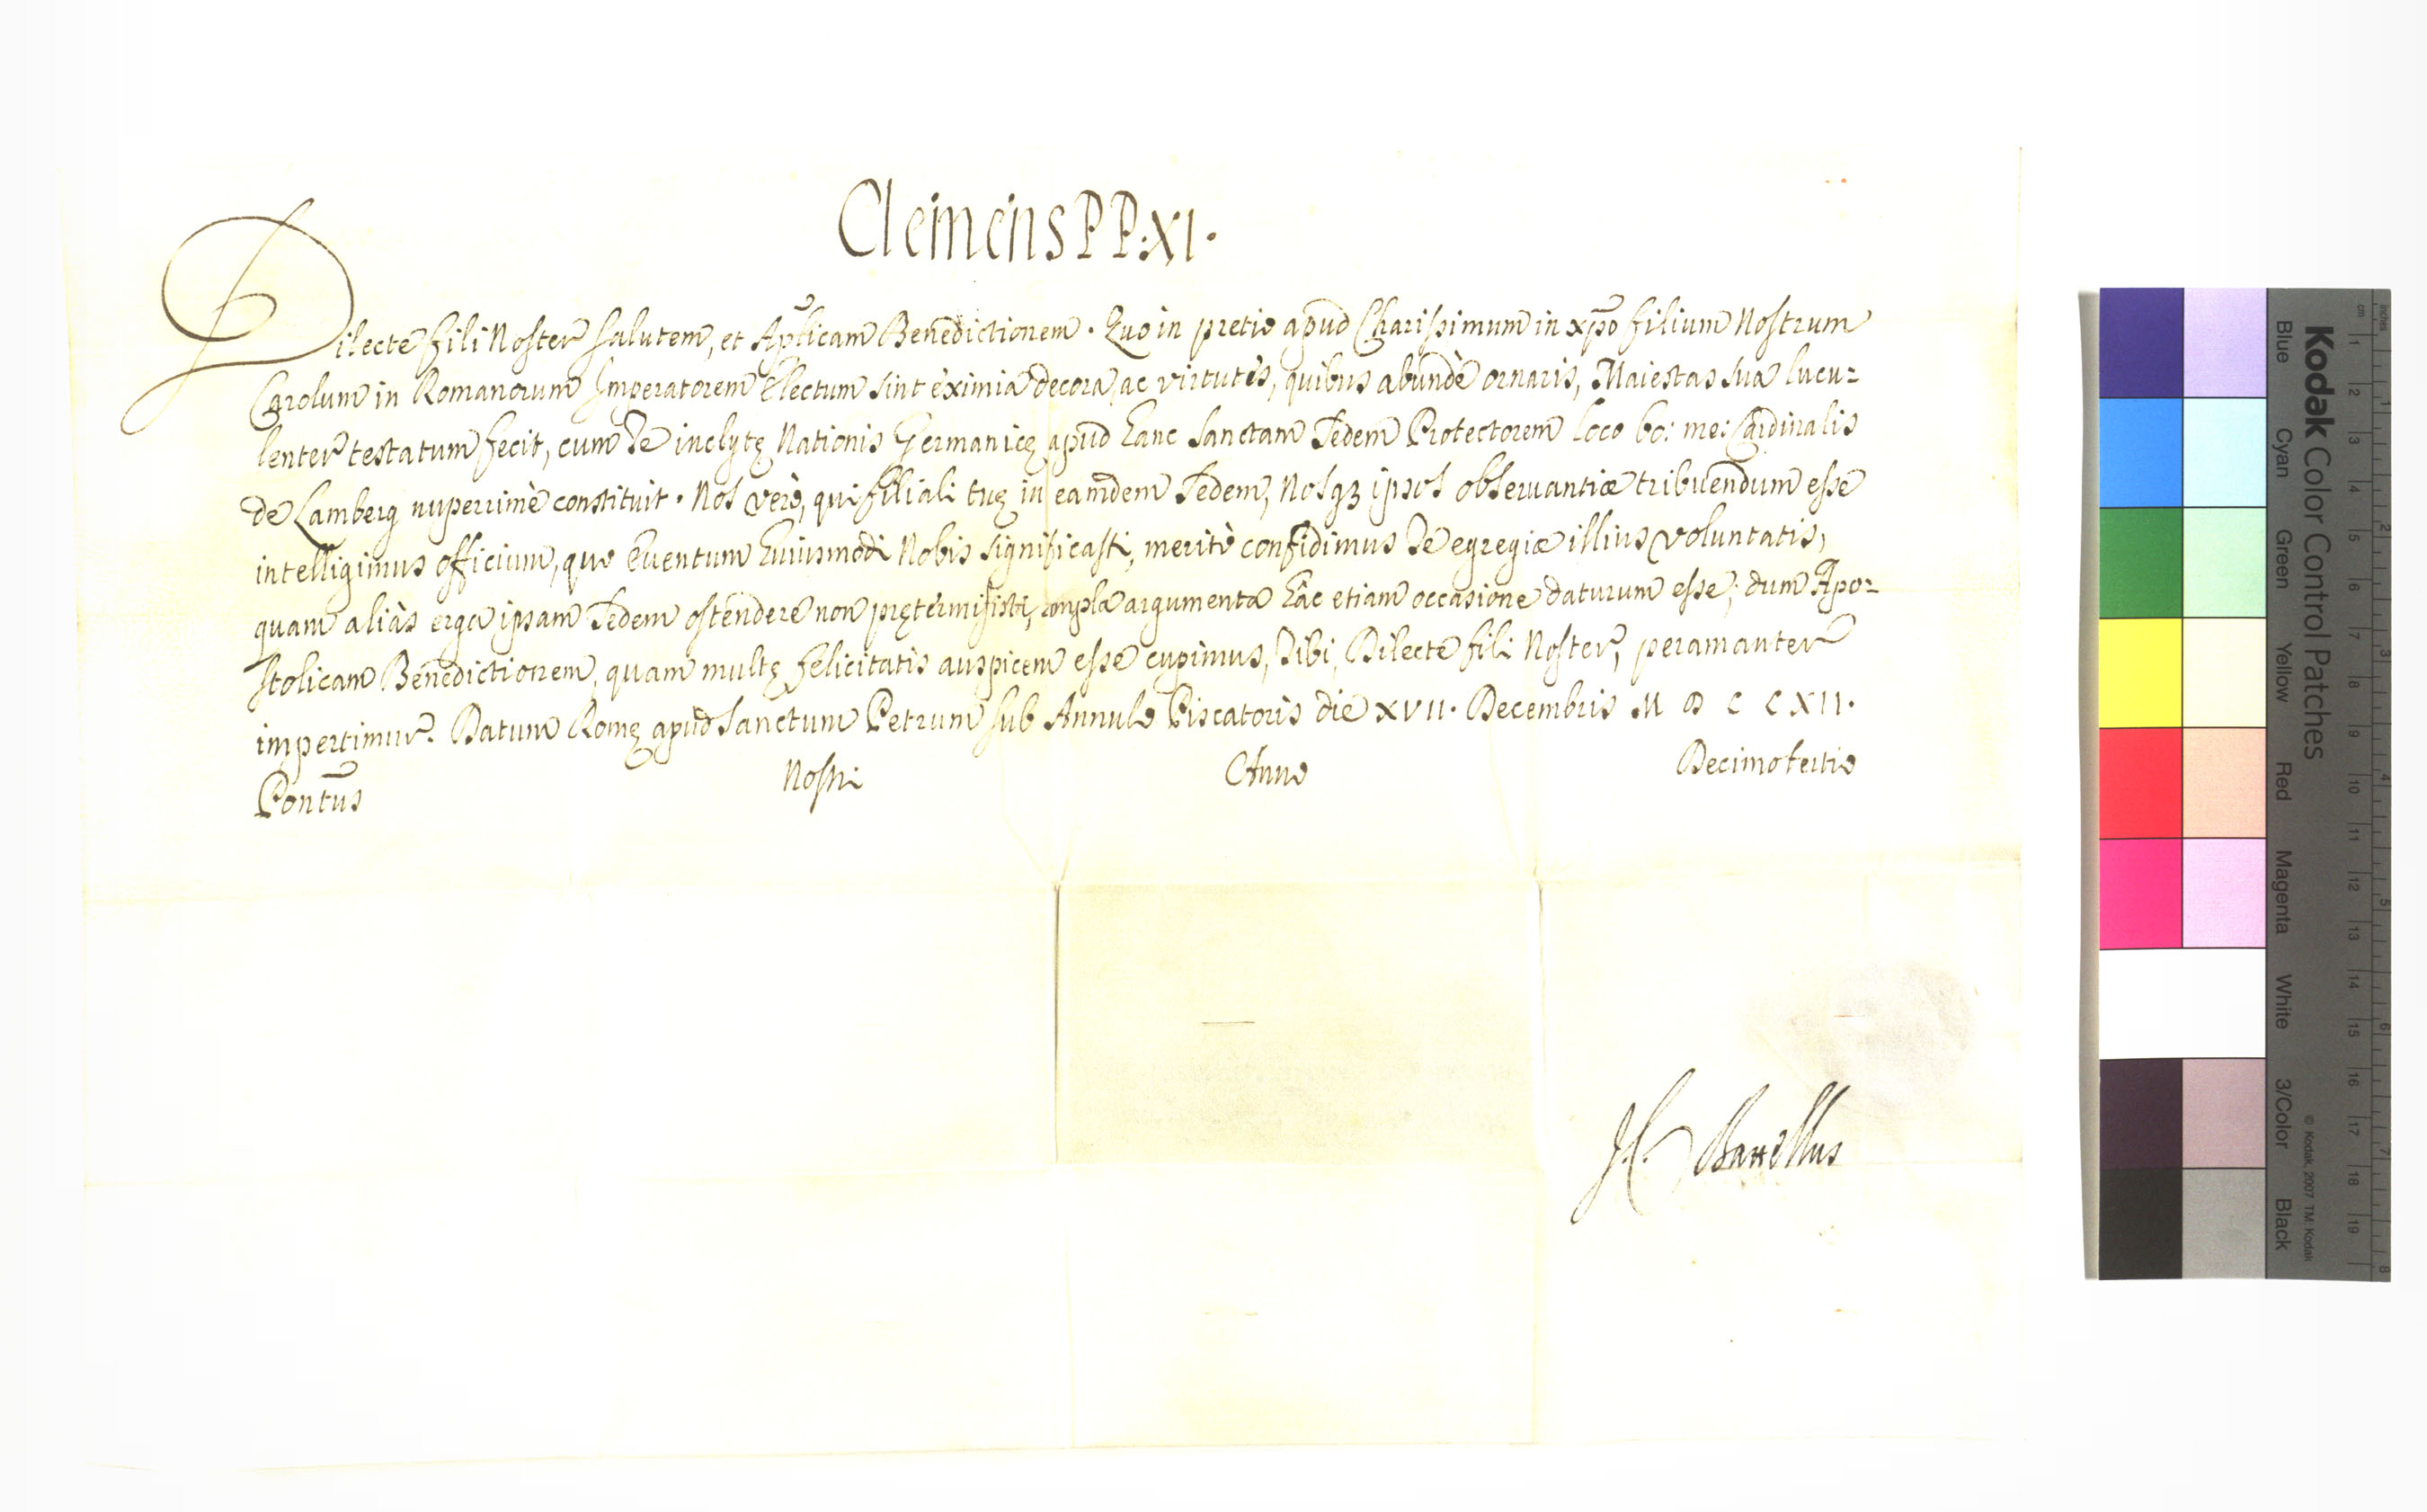 Clemens PP. XI.
Dilecte fili Noster salutem, et Aplicam Benedictionem. Quo in pretio apud Charissimum in xpo filium Nostrum
Carolum in Romanorum Imperatorem Electum sint eximia decora, ac virtutes, quibus abundè ornaris, Maiestas sua lucu-
lenter testatum fecit, cum Te inclytę Nationis Germanicę apud hanc Sanctam Sedem Protectorem loco bo: me: Cardinalis
de Lamberg nuperrimè constituit. Nos verò, qui filiali tuę in eamdem Sedem, Nosq3 ipsos obseruantiæ tribuendum esse
intelligimus officium, quo euentum huiusmodi Nobis significasti, meritò confidimus Te egregiæ illius voluntatis,
quam aliàs erga ipsam Sedem ostendere non prętermisisti, ampla argumenta hac etiam occasione daturum esse; dum Apo-
stolicam Benedictionem, quam multę felicitatis auspicem esse cupimus, Tibi, Dilecte fili Noster, peramanter
impertimur. Datum Romę apud Sanctum Petrum sub Annulo Piscatoris die XVII. Decembris M D C C XII.
Pontus Nostri Anno Decimotertio
Kodak Color Control Patches
Blue Cyan Green Yellow Red Magenta White 3/Color Black
© Kodak, 2007 TM: Kodak
inches 1 2 3 4 5 6 7 8
cm 1 2 3 4 5 6 7 8 9 10 11 12 13 14 15 16 17 18 19